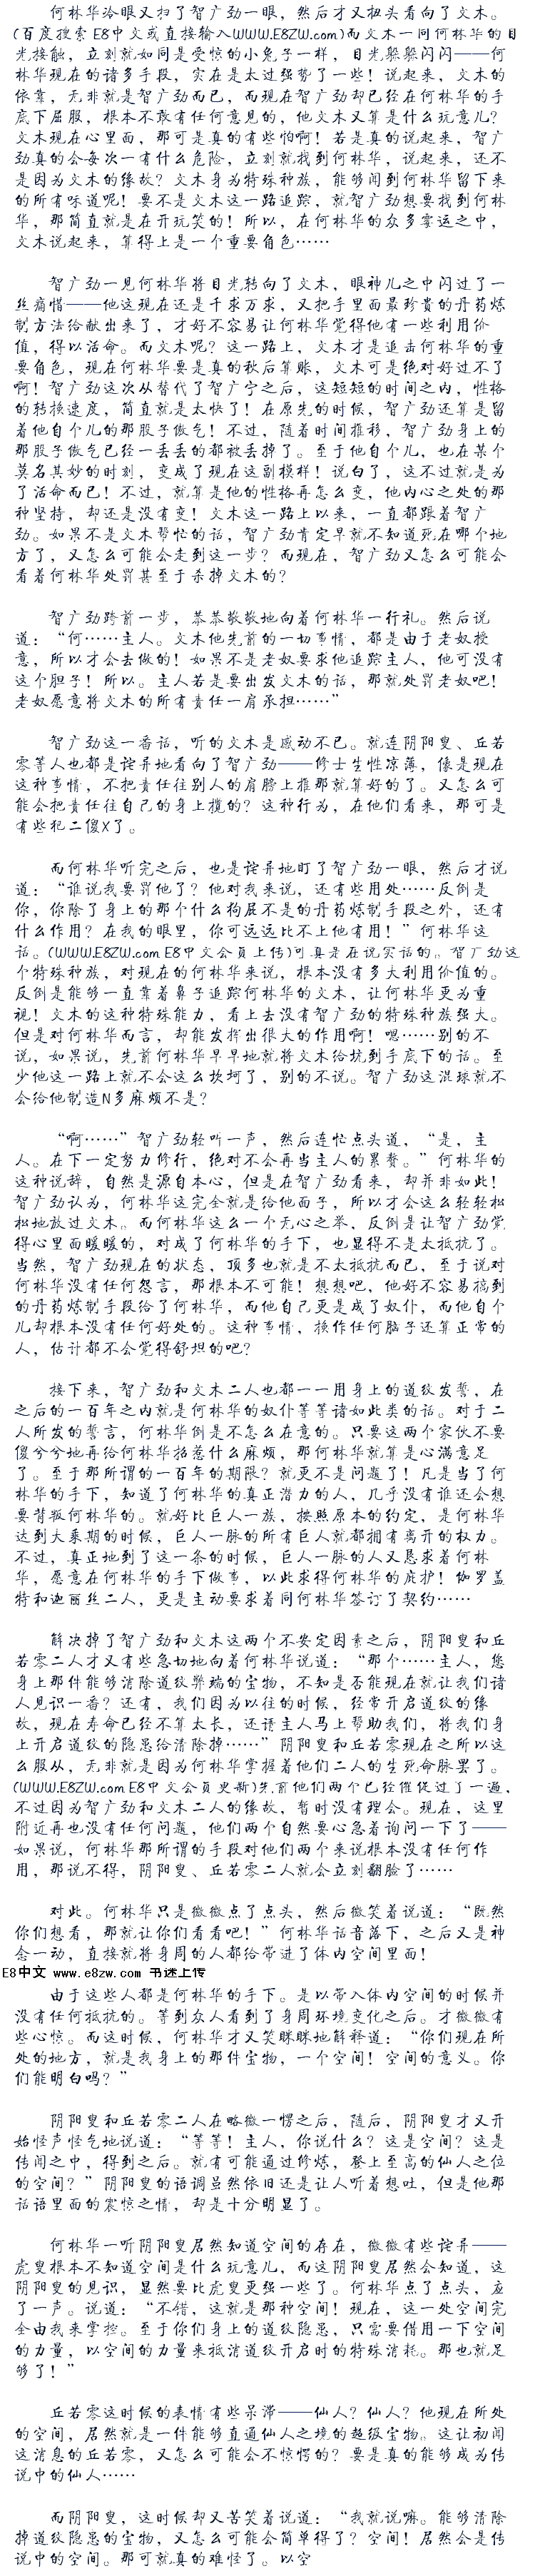 何林华冷眼又扫了智广劲一眼，然后才又扭头看向了文木。
(百度搜索E8中文或直接输入WWW.E8ZW.com)而文木一同何林华的目
光接触，立刻就如同是受惊的小兔子一样，目光躲躲闪闪——何
林华现在的诸多手段，实在是太过强势了一些！说起来，文木的
依靠，无非就是智广劲而已，而现在智广劲却已经在何林华的手
底下屈服，根本不敢有任何意见的，他文木又算是什么玩意儿？
文木现在心里面，那可是真的有些怕啊！若是真的说起来，智广
劲真的会每次一有什么危险，立刻就找到何林华，说起来，还不
是因为文木的缘故？文木身为特殊种族，能够闻到何林华留下来
的所有味道呢！要不是文木这一路追踪，就智广劲想要找到何林
华，那简直就是在开玩笑的！所以，在何林华的众多霉运之中，
文木说起来，算得上是一个重要角色……
智广劲一见何林华将目光转向了文木，眼神儿之中闪过了一
丝痛惜——他这现在还是千求万求，又把手里面最珍贵的丹药炼
制方法给献出来了，才好不容易让何林华觉得他有一些利用价
值，得以活命。而文木呢？这一路上，文木才是追击何林华的重
要角色，现在何林华要是真的秋后算账，文木可是绝对好过不了
啊！智广劲这次从替代了智广宁之后，这短短的时间之内，性格
的转换速度，简直就是太快了！在原先的时候，智广劲还算是留
着他自个儿的那股子傲气！不过，随着时间推移，智广劲身上的
那股子傲气已经一丢丢的都被丢掉了。至于他自个儿，也在某个
莫名其妙的时刻，变成了现在这副模样！说白了，这不过就是为
了活命而已！不过，就算是他的性格再怎么变，他内心之处的那
种坚持，却还是没有变！文木这一路上以来，一直都跟着智广
劲。如果不是文木帮忙的话，智广劲肯定早就不知道死在哪个地
方了，又怎么可能会走到这一步？而现在，智广劲又怎么可能会
看着何林华处罚甚至于杀掉文木的？
智广劲跨前一步，恭恭敬敬地向着何林华一行礼。然后说
道：“何……主人。文木他先前的一切事情，都是由于老奴授
意，所以才会去做的！如果不是老奴要求他追踪主人，他可没有
这个胆子！所以。主人若是要出发文木的话，那就处罚老奴吧！
老奴愿意将文木的所有责任一肩承担……”
智广劲这一番话，听的文木是感动不已。就连阴阳叟、丘若
零等人也都是诧异地看向了智广劲——修士生性凉薄，像是现在
这种事情，不把责任往别人的肩膀上推那就算好的了。又怎么可
能会把责任往自己的身上揽的？这种行为，在他们看来，那可是
有些犯二傻X了。
而何林华听完之后，也是诧异地盯了智广劲一眼，然后才说
道：“谁说我要罚他了？他对我来说，还有些用处……反倒是
你，你除了身上的那个什么狗屁不是的丹药炼制手段之外，还有
什么作用？在我的眼里，你可远远比不上他有用！”何林华这
话。(WWW.E8ZW.com E8中文会员上传)可真是在说实话的。智广劲这
个特殊种族，对现在的何林华来说，根本没有多大利用价值的。
反倒是能够一直靠着鼻子追踪何林华的文木，让何林华更为重
视！文木的这种特殊能力，看上去没有智广劲的特殊种族强大。
但是对何林华而言，却能发挥出很大的作用啊！嗯……别的不
说，如果说，先前何林华早早地就将文木给坑到手底下的话。至
少他这一路上就不会这么坎坷了，别的不说。智广劲这混球就不
会给他制造N多麻烦不是？
“啊……”智广劲轻听一声，然后连忙点头道，“是，主
人。在下一定努力修行，绝对不会再当主人的累赘。”何林华的
这种说辞，自然是源自本心，但是在智广劲看来，却并非如此！
智广劲认为，何林华这完全就是给他面子，所以才会这么轻轻松
松地放过文木。而何林华这么一个无心之举，反倒是让智广劲觉
得心里面暖暖的，对成了何林华的手下，也显得不是太抵抗了。
当然，智广劲现在的状态，顶多也就是不太抵抗而已，至于说对
何林华没有任何怨言，那根本不可能！想想吧，他好不容易搞到
的丹药炼制手段给了何林华，而他自己更是成了奴仆，而他自个
儿却根本没有任何好处的。这种事情，换作任何脑子还算正常的
人，估计都不会觉得舒坦的吧？
接下来，智广劲和文木二人也都一一用身上的道纹发誓，在
之后的一百年之内就是何林华的奴仆等等诸如此类的话。对于二
人所发的誓言，何林华倒是不怎么在意的。只要这两个家伙不要
傻兮兮地再给何林华招惹什么麻烦，那何林华就算是心满意足
了。至于那所谓的一百年的期限？就更不是问题了！凡是当了何
林华的手下，知道了何林华的真正潜力的人，几乎没有谁还会想
要背叛何林华的。就好比巨人一族，按照原本的约定，是何林华
达到大乘期的时候，巨人一脉的所有巨人就都拥有离开的权力。
不过，真正地到了这一条的时候，巨人一脉的人又恳求着何林
华，愿意在何林华的手下做事，以此求得何林华的庇护！伽罗盖
特和迦丽丝二人，更是主动要求着同何林华签订了契约……
解决掉了智广劲和文木这两个不安定因素之后，阴阳叟和丘
若零二人才又有些急切地向着何林华说道：“那个……主人，您
身上那件能够消除道纹弊端的宝物，不知是否能现在就让我们诸
人见识一番？还有，我们因为以往的时候，经常开启道纹的缘
故，现在寿命已经不算太长，还请主人马上帮助我们，将我们身
上开启道纹的隐患给清除掉……”阴阳叟和丘若零现在之所以这
么服从，无非就是因为何林华掌握着他们二人的生死命脉罢了。
(WWW.E8ZW.com E8中文会员更新)先前他们两个已经催促过了一遍，
不过因为智广劲和文木二人的缘故，暂时没有理会。现在，这里
附近再也没有任何问题，他们两个自然要心急着询问一下了——
如果说，何林华那所谓的手段对他们两个来说根本没有任何作
用，那说不得，阴阳叟、丘若零二人就会立刻翻脸了……
对此。何林华只是微微点了点头，然后微笑着说道：“既然
你们想看，那就让你们看看吧！”何林华话音落下，之后又是神
念一动，直接就将身周的人都给带进了体内空间里面！
E8中文 www.e8zw.com 书迷上传
由于这些人都是何林华的手下。是以带入体内空间的时候并
没有任何抵抗的。等到众人看到了身周环境变化之后。才微微有
些心惊。而这时候，何林华才又笑眯眯地解释道：“你们现在所
处的地方，就是我身上的那件宝物，一个空间！空间的意义。你
们能明白吗？”
阴阳叟和丘若零二人在略微一愣之后，随后，阴阳叟才又开
始怪声怪气地说道：“等等！主人，你说什么？这是空间？这是
传闻之中，得到之后。就有可能通过修炼，登上至高的仙人之位
的空间？”阴阳叟的语调虽然依旧还是让人听着想吐，但是他那
话语里面的震惊之情，却是十分明显了。
何林华一听阴阳叟居然知道空间的存在，微微有些诧异——
虎叟根本不知道空间是什么玩意儿，而这阴阳叟居然会知道，这
阴阳叟的见识，显然要比虎叟更强一些了。何林华点了点头，应
了一声。说道：“不错，这就是那种空间！现在，这一处空间完
全由我来掌控。至于你们身上的道纹隐患，只需要借用一下空间
的力量，以空间的力量来抵消道纹开启时的特殊消耗。那也就足
够了！”
丘若零这时候的表情有些呆滞——仙人？仙人？他现在所处
的空间，居然就是一件能够直通仙人之境的超级宝物。这让初闻
这消息的丘若零，又怎么可能会不惊愕的？要是真的能够成为传
说中的仙人……
而阴阳叟，这时候却又苦笑着说道：“我就说嘛。能够清除
掉道纹隐患的宝物，又怎么可能会简单得了？空间！居然会是传
说中的空间。那可就真的难怪了。以空